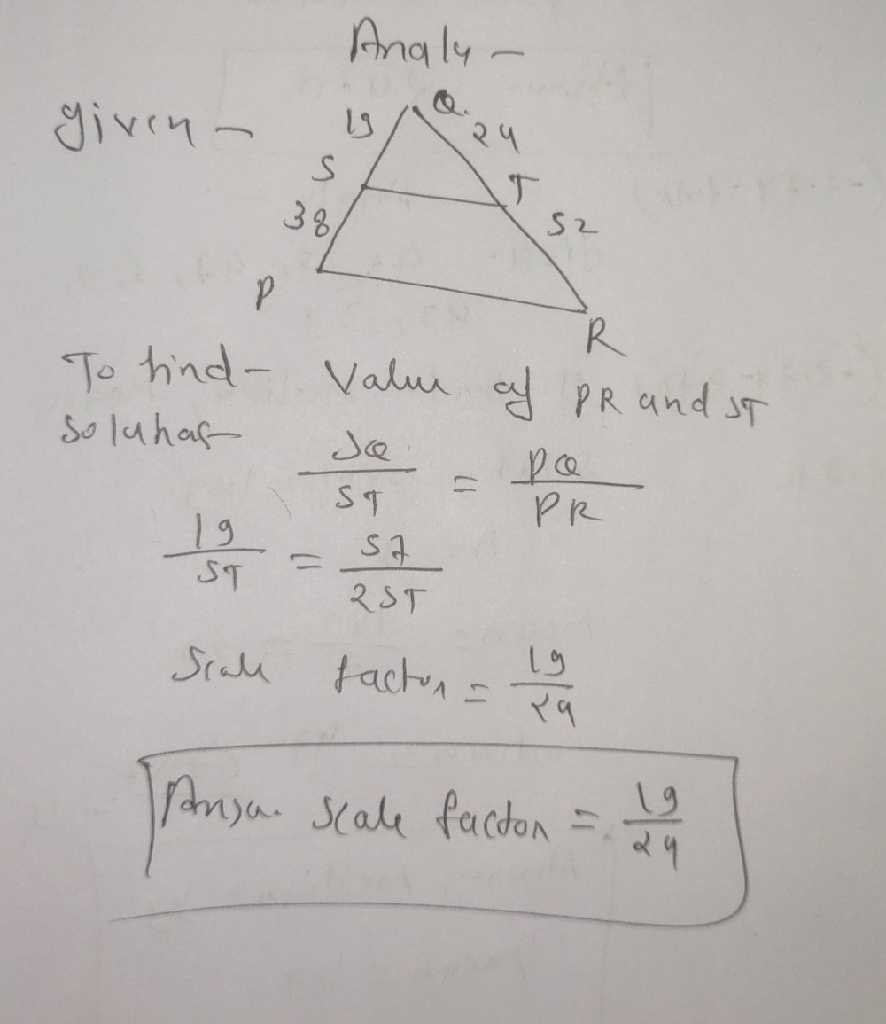 Analy -
given -
Q.
19
24
S
T
38
52
P
R
To find - Value of PR and ST
Soluhas
SQ / ST = PQ / PR
19 / ST = 57 / 2ST
Scale factor = 19 / 24
Scale factor = 19 / 24